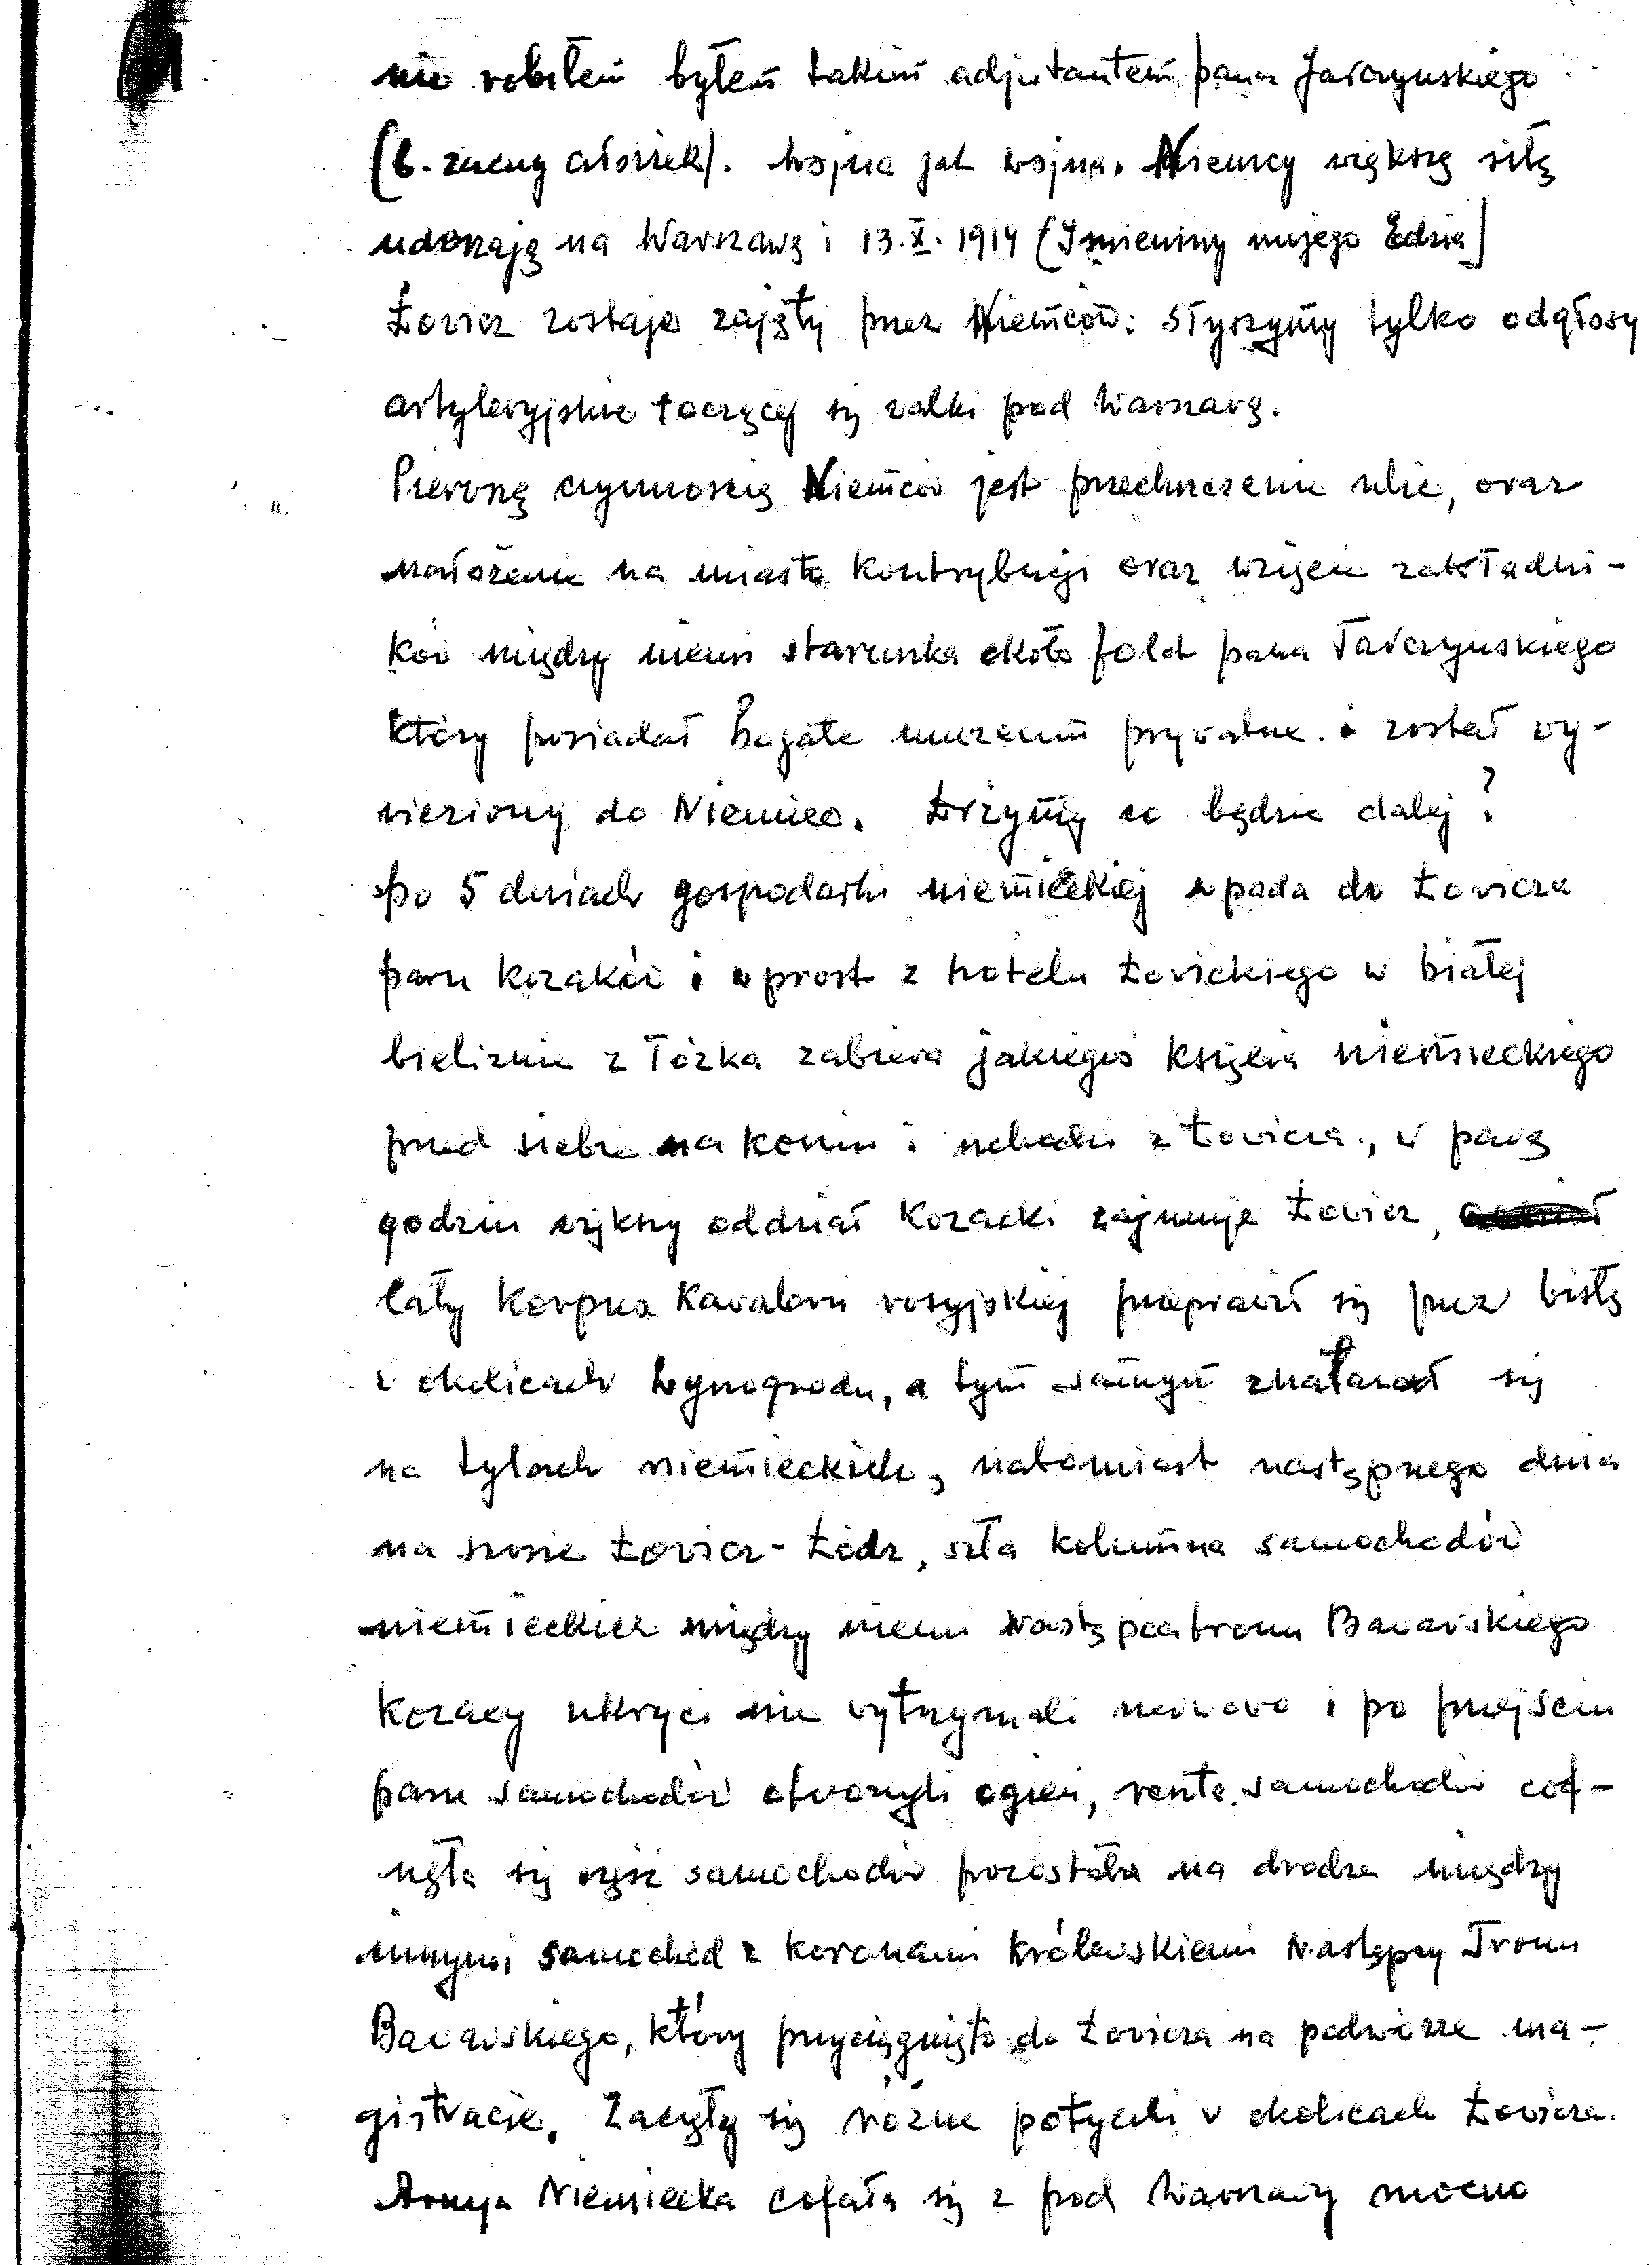 nie robiłem byłem takim adjutantem pana Tarczynskiego
(b. zacny człowiek). Wojna jak wojna. Niemcy większą siłą
uderzają na Warszawę i 13.X.1914 (Imieniny mojego Edzia)
Łowicz zostaje zajęty przez Niemców: słyszymy tylko odgłosy
artyleryjskie toczącej się walki pod Warszawą.
Pierwszą czynnością Niemców jest przechrzczenie ulic, oraz
nałożenie na miasto kontrybucji oraz wzięcie zakładni-
ków między niemi staruszka około pana Tarczynskiego
który posiadał bogate muzeum prywatne. i został wy-
wieziony do Niemiec. co będzie dalej?
Po 5 dniach gospodarki niemieckiej wpada do Łowicza
paru kozaków i wprost z hotelu Łowickiego w białej
bieliznie z łóżka zabiera jakiegoś księcia niemieckiego
przed siebie na koniu i uchodzi z Łowicza, w parę
godzin większy oddział kozacki zajmuje Łowicz,
Cały korpus kawalerii rosyjskiej przeprawił się przez Wisłę
w okolicach Wynogrodu, a tym samym znalazł się
na tyłach niemieckich, natomiast następnego dnia
na szosie Łowicz-Łódz, szła kolumna samochodów
niemieckich między niemi Następca tronu Bawarskiego
Kozacy ukryci nie wytrzymali nerwowo i po przejściu
paru samochodów otworzyli ogień, reszta samochodów cof-
nęła się część samochodów pozostała na drodze między
innymi samochód z koronami królewskiemi Następcy Tronu
Bawarskiego, który przyciągnięto do Łowicza na podwórze ma-
gistracie. Zaczęły się różne potyczki w okolicach Łowicza.
Armja Niemiecka cofała się z pod Warszawy mocno